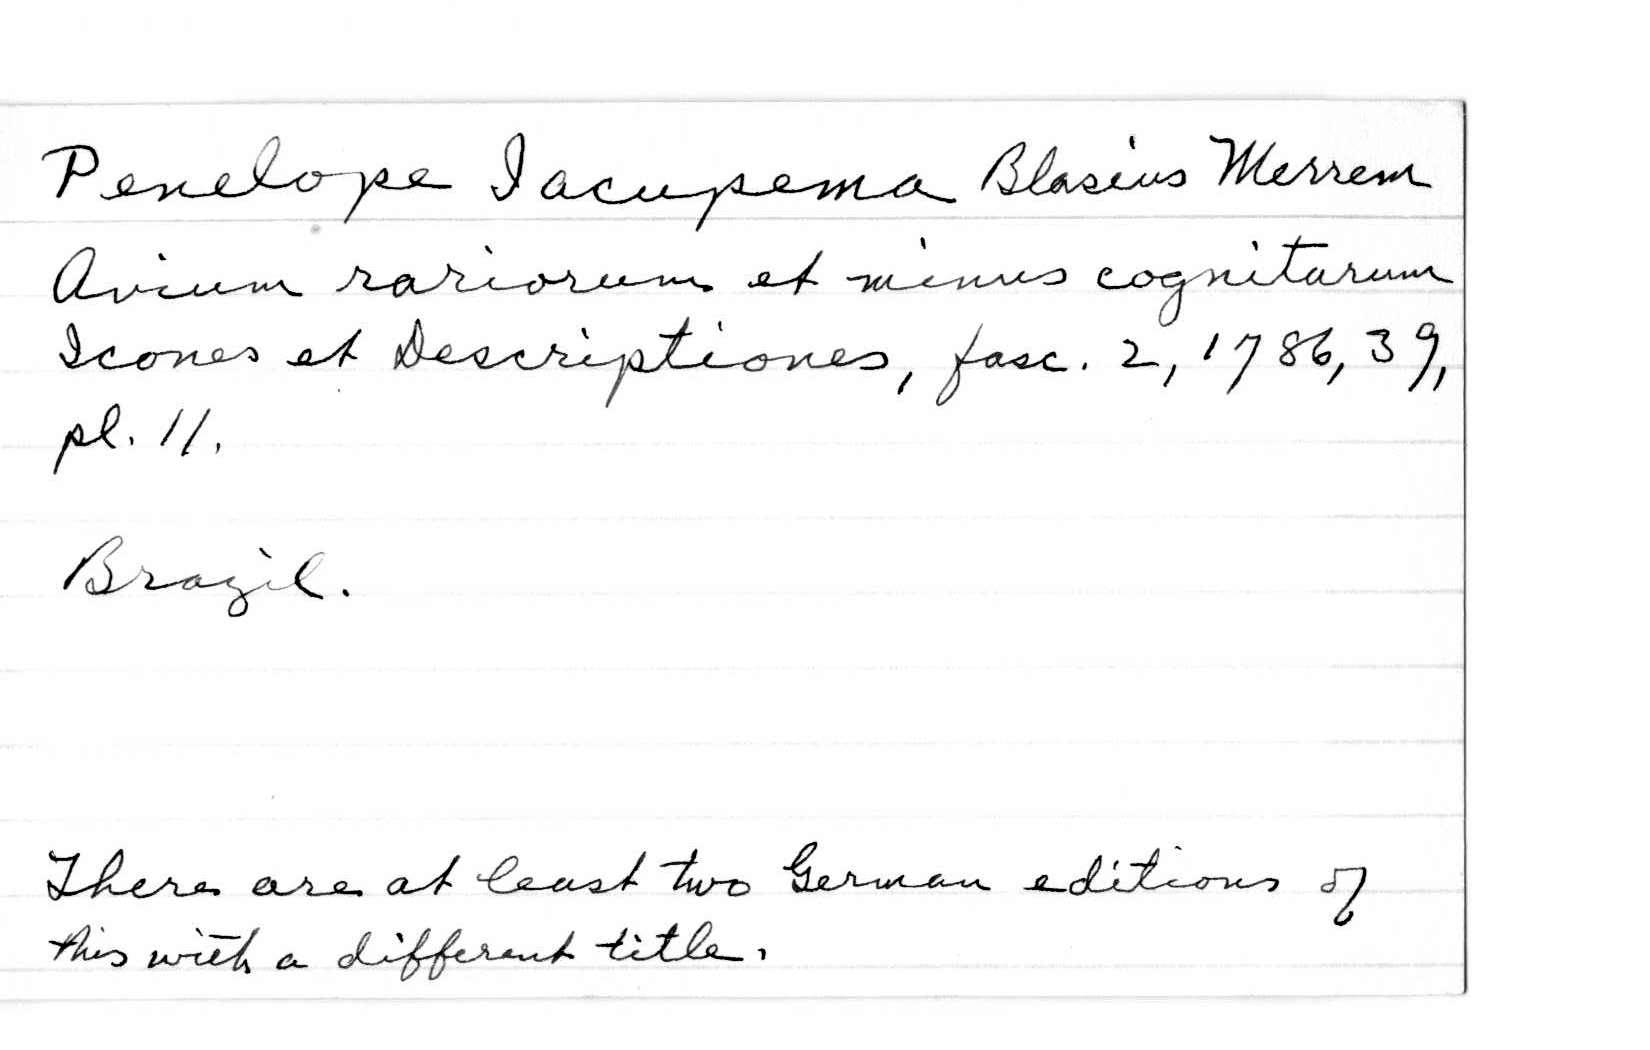 Penelope Iacupema Blasius Merrem
Avium rariorum et minus cognitarum
Icones et Descriptiones, fasc. 2, 1786, 39,
pl. 11.
Brazil.
There are at least two German editions of
this with a different title.